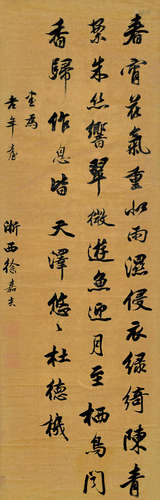 春宵花氣重如雨濕侵衣綠綺陳青
案朱絲響翠微遊魚迎月至栖鳥聞
香歸作息皆天澤悠々杜德機
為
老年臺
浙西徐嘉炎